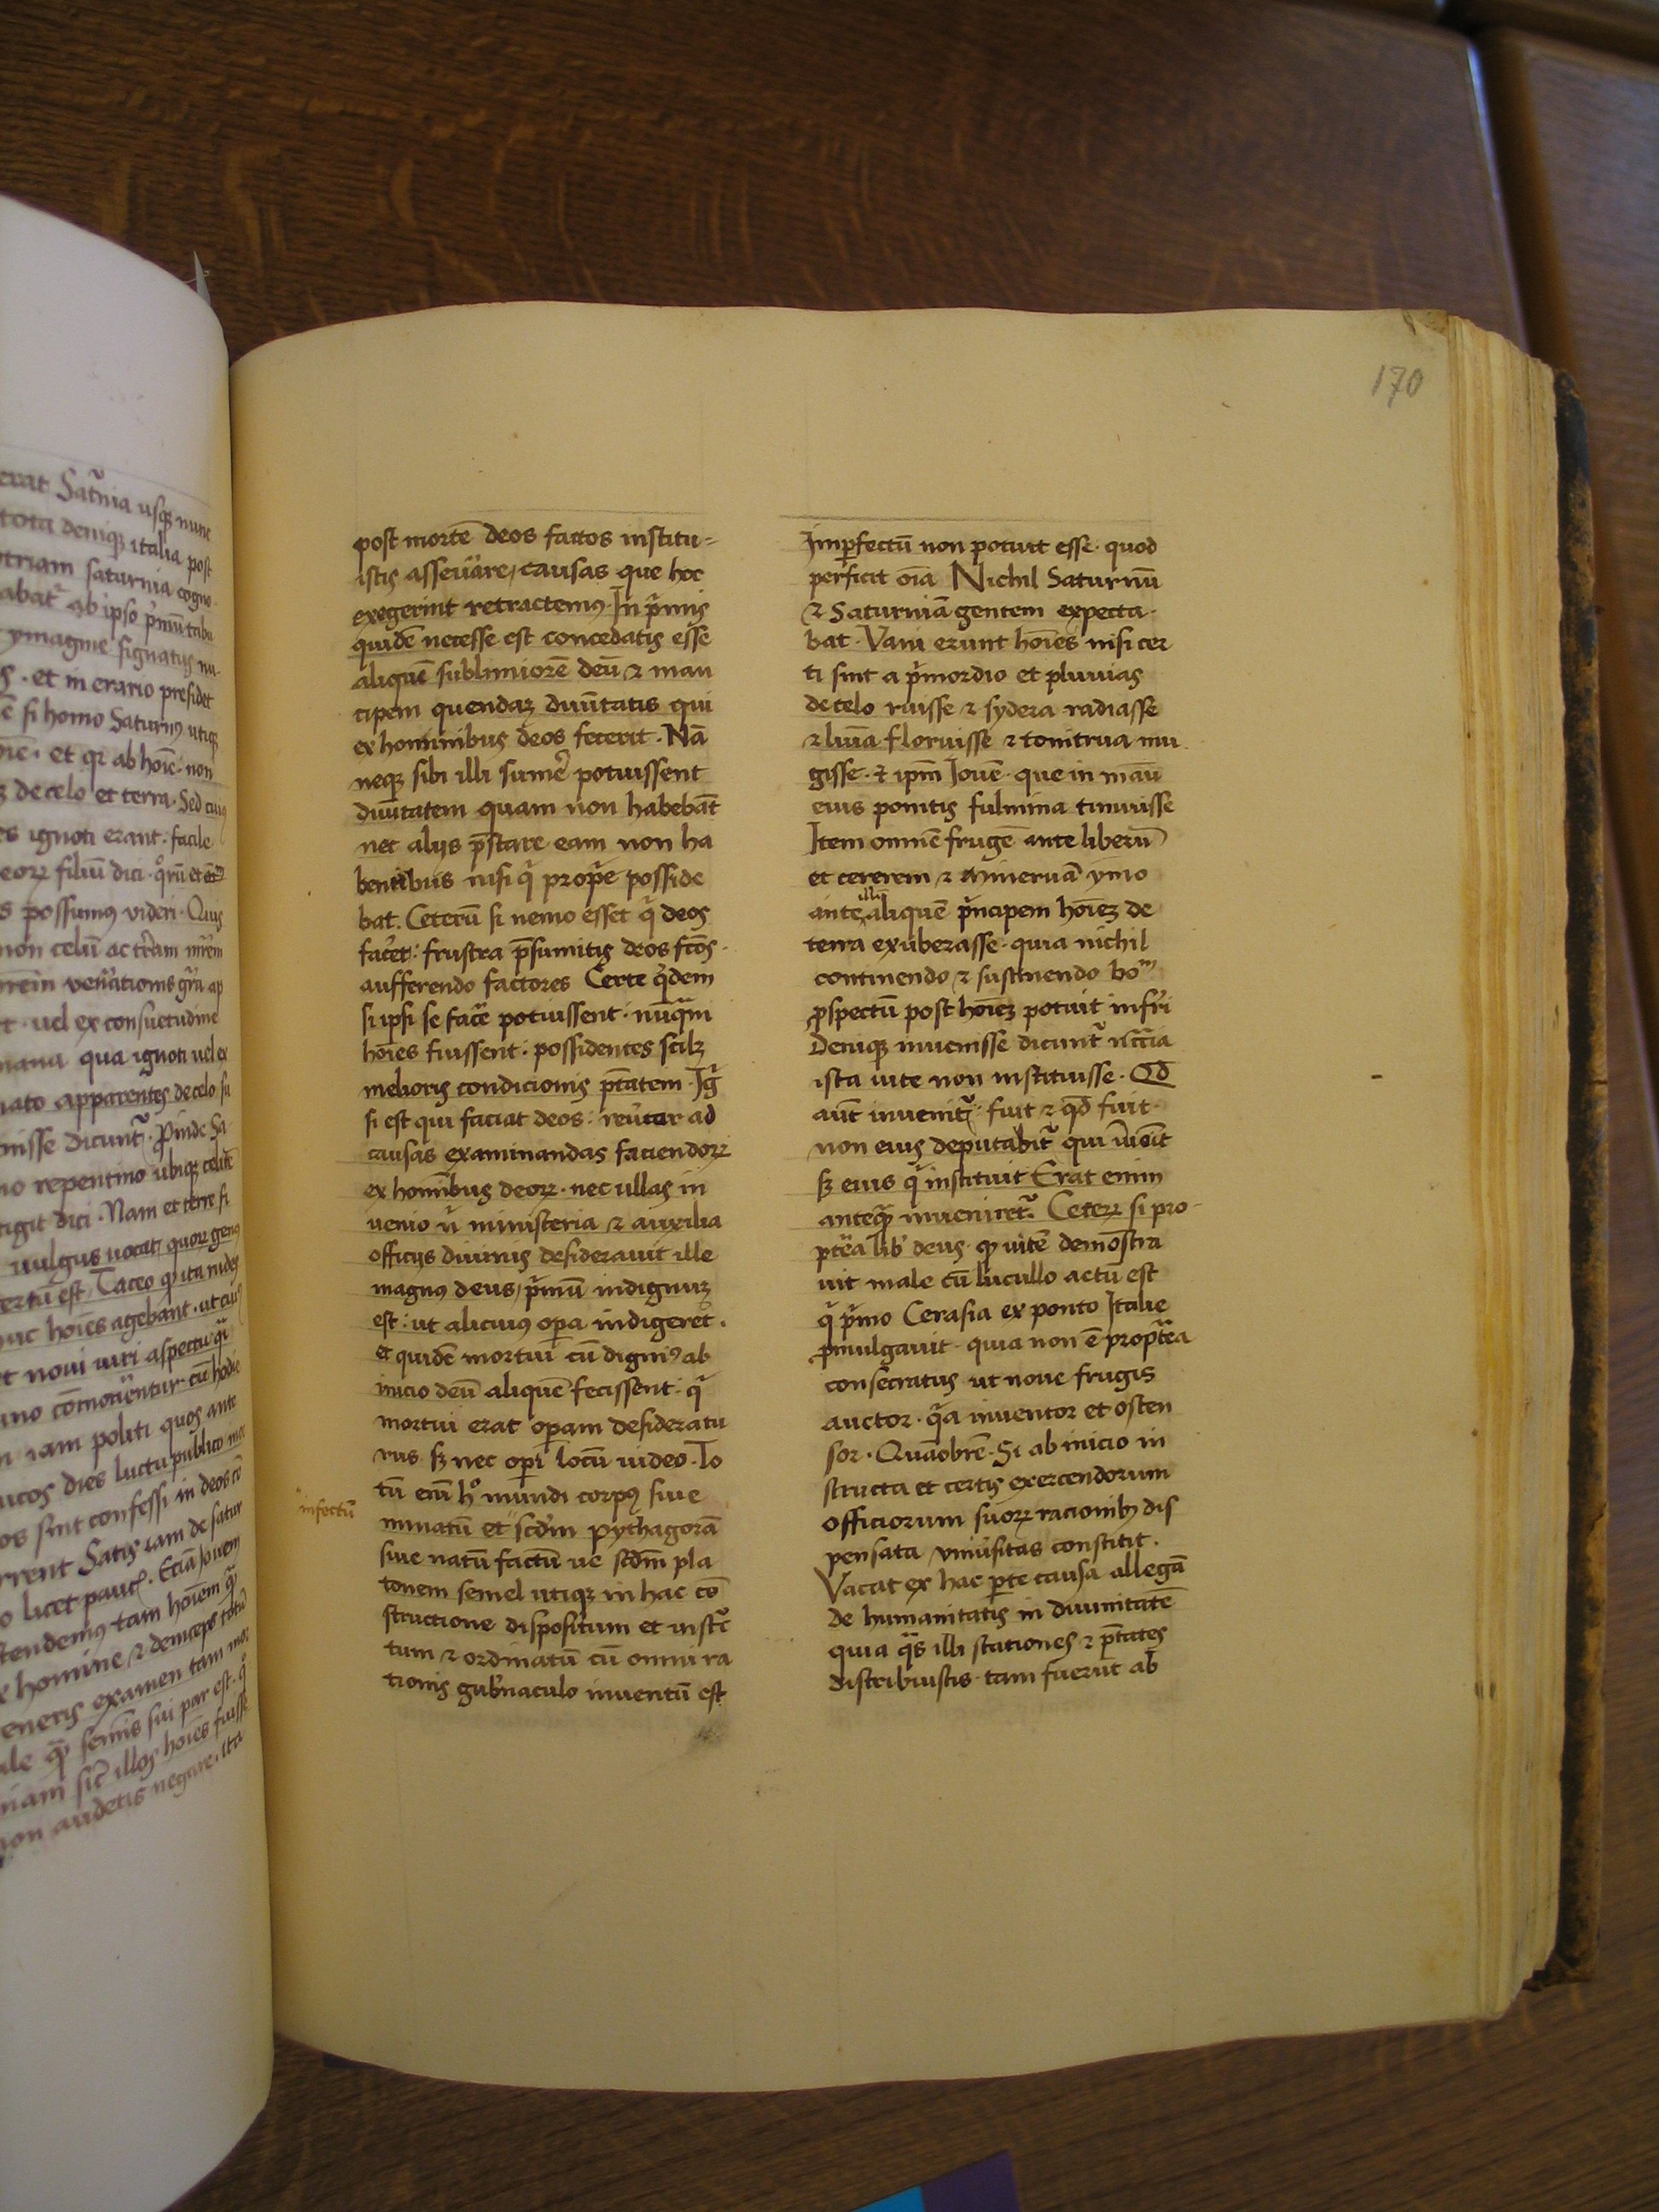 erat Sat̄nia usqꝫ nunc
tota deniqꝫ italia post
triam saturnia cogno
abat᷑ ab ipso p̄mū tabu
ymagine signatus nu
et in erario presidet
si homo Saturnꝰ utiqꝫ
et qr ab hoīe non
de celo et terra. Sed cuiꝰ
ignoti erant facile
filiū dici
possumꝰ videri. Quis
non celū ac
uel ex consuetudine
mana qua ignoti uel ex
apparentes de celo su
nisse dicunt᷑. Proinde Sa
repentino ubiqꝫ celitē
tigit dici. Nam et terre fi
uulgus uocat quoꝝ genꝰ
est. Taceo qꝙ ita rudes
hoīes agebant. ut cuiꝰ
noui uiri aspectu
cōmouentur cū hodie
iam politi quos ante
dies luctu publico
sint confessi in deos
Satis iam de satur
licet paucꝭ. Etiā Jouem
tendemꝰ tam hoīem
homine ⁊ deinceps
generis examen tam
qꝫ̄ seminis sui par est
illos hoīes fuisse
non audetis negare. ita
170
post mortē deos factos institu=
istis asseuare, causas que hoc
exegerint retractemꝰ. In p̄mis
quidē necesse est concedatis esse
aliquē sublimiorē deū ⁊ man
cipem quendaꝫ diuītatis qui
ex hominibus deos fecerit. Nā
neqꝫ sibi illi sumē potuissent
diuītatem quam non habebāt
nec alijs p̄stare eam non ha
bentibus nisi q̄ prop̄e posside
bat. Ceterū si nemo esset q̄ deos
facēt: frustra p̄sumitis deos fcōs
aufferendo factores Certe q̄dem
si ipsi se facē potuissent. nūq̄m
hoīes fuissent. possidentes scilꝫ
melioris condicionis p̄tatem. Ig̃
si est qui faciat deos: reūtar ad
causas examinandas faciendoꝝ
ex hominībus deoꝝ. nec ullas in
uenio ñ ministeria ⁊ auxilia
officijs diuinis desiderauit ille
magnꝰ deus, p̄mū indignuꝫ
est: ut alicuiꝰ opa indigeret.
et quidē mortui cū digniꝰ ab
inicio deū aliquē fecissent. q̄
mortui erat opam desideratu
rus sꝫ nec opi locū uideo. To
tū eim̄ h° mundi corpꝰ siue
infectū
innatū et scd̄m pythagorā
siue natū factū ue scd̄m pla
tonem semel utiqꝫ in hac cō
structione dispositum et instc̄
tum ⁊ ordinatū cū omni ra
tionis gub̄naculo inuentū est
Imꝑfectū non potuit esse. quod
perficit oīa Nichil Saturnū
⁊ Saturniā gentem expecta
bat. Vani erunt hoīes nisi cer
ti sint a p̄mordio et pluuias
de celo ruisse ⁊ sydera radiasse
⁊ luīa floruisse ⁊ tonitrua mu
gisse. ⁊ ipm̄ Jouē. que in manū
eius ponitis fulmina timuisse
Item omnē frugē ante liberū
et cererem ⁊ Mineruā ymo
ante illū aliquē p̄ncipem hoīeꝫ de
terra exuberasse. quia nichil
continendo ⁊ sustinendo
ꝓspectū post hoīeꝫ potuit inferri
Deniqꝫ inuenisse dicunt᷑ nccīa
ista uite non instituisse. Qd̄
aūt inuenit᷑. fuit ⁊ qd̄ fuit.
non eius deputabit᷑ qui inuēit
sꝫ eius q̄ instituit Erat enim
anteqꝫ̄ inueniret᷑. Ceteꝝ si pro
pt̄ea lib̄ deus. qꝙ uitē demōstra
uit male cū lucullo actū est
q̄ p̄mo Cerasia ex ponto Italie
ꝓmulgauit. quia non ē propt̄ea
consecratus ut noue frugis
auctor. q̄a inuentor et osten
sor. Quāobrē. Si ab inicio in
structa et certis exercendorum
officiorum suoꝝ racionibꝫ dis
pensata vniuūsitas constitit.
Vacat ex hac ꝑte causa allegā
de humanitatis in diuinitatē
quia q̄s illi stationes ⁊ p̄tates
distribuistis. tam fuerūt ab